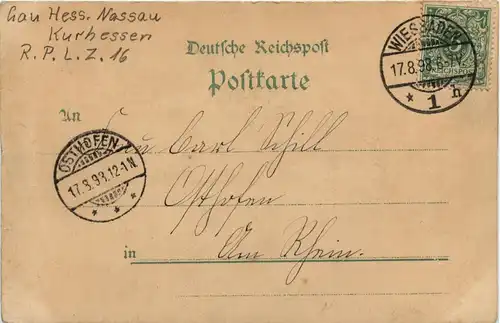 Gau Hess. Nassau
Kurhessen
R.P.L.Z. 16
Deutsche Reichspost
Postkarte
WIESBADEN
17.8.98.6-7V.
* 1 h
An
Frau Carl Schill
OSTHOFEN
17.8.98.12-1N
* * *
Osthofen
in Am Rhein.